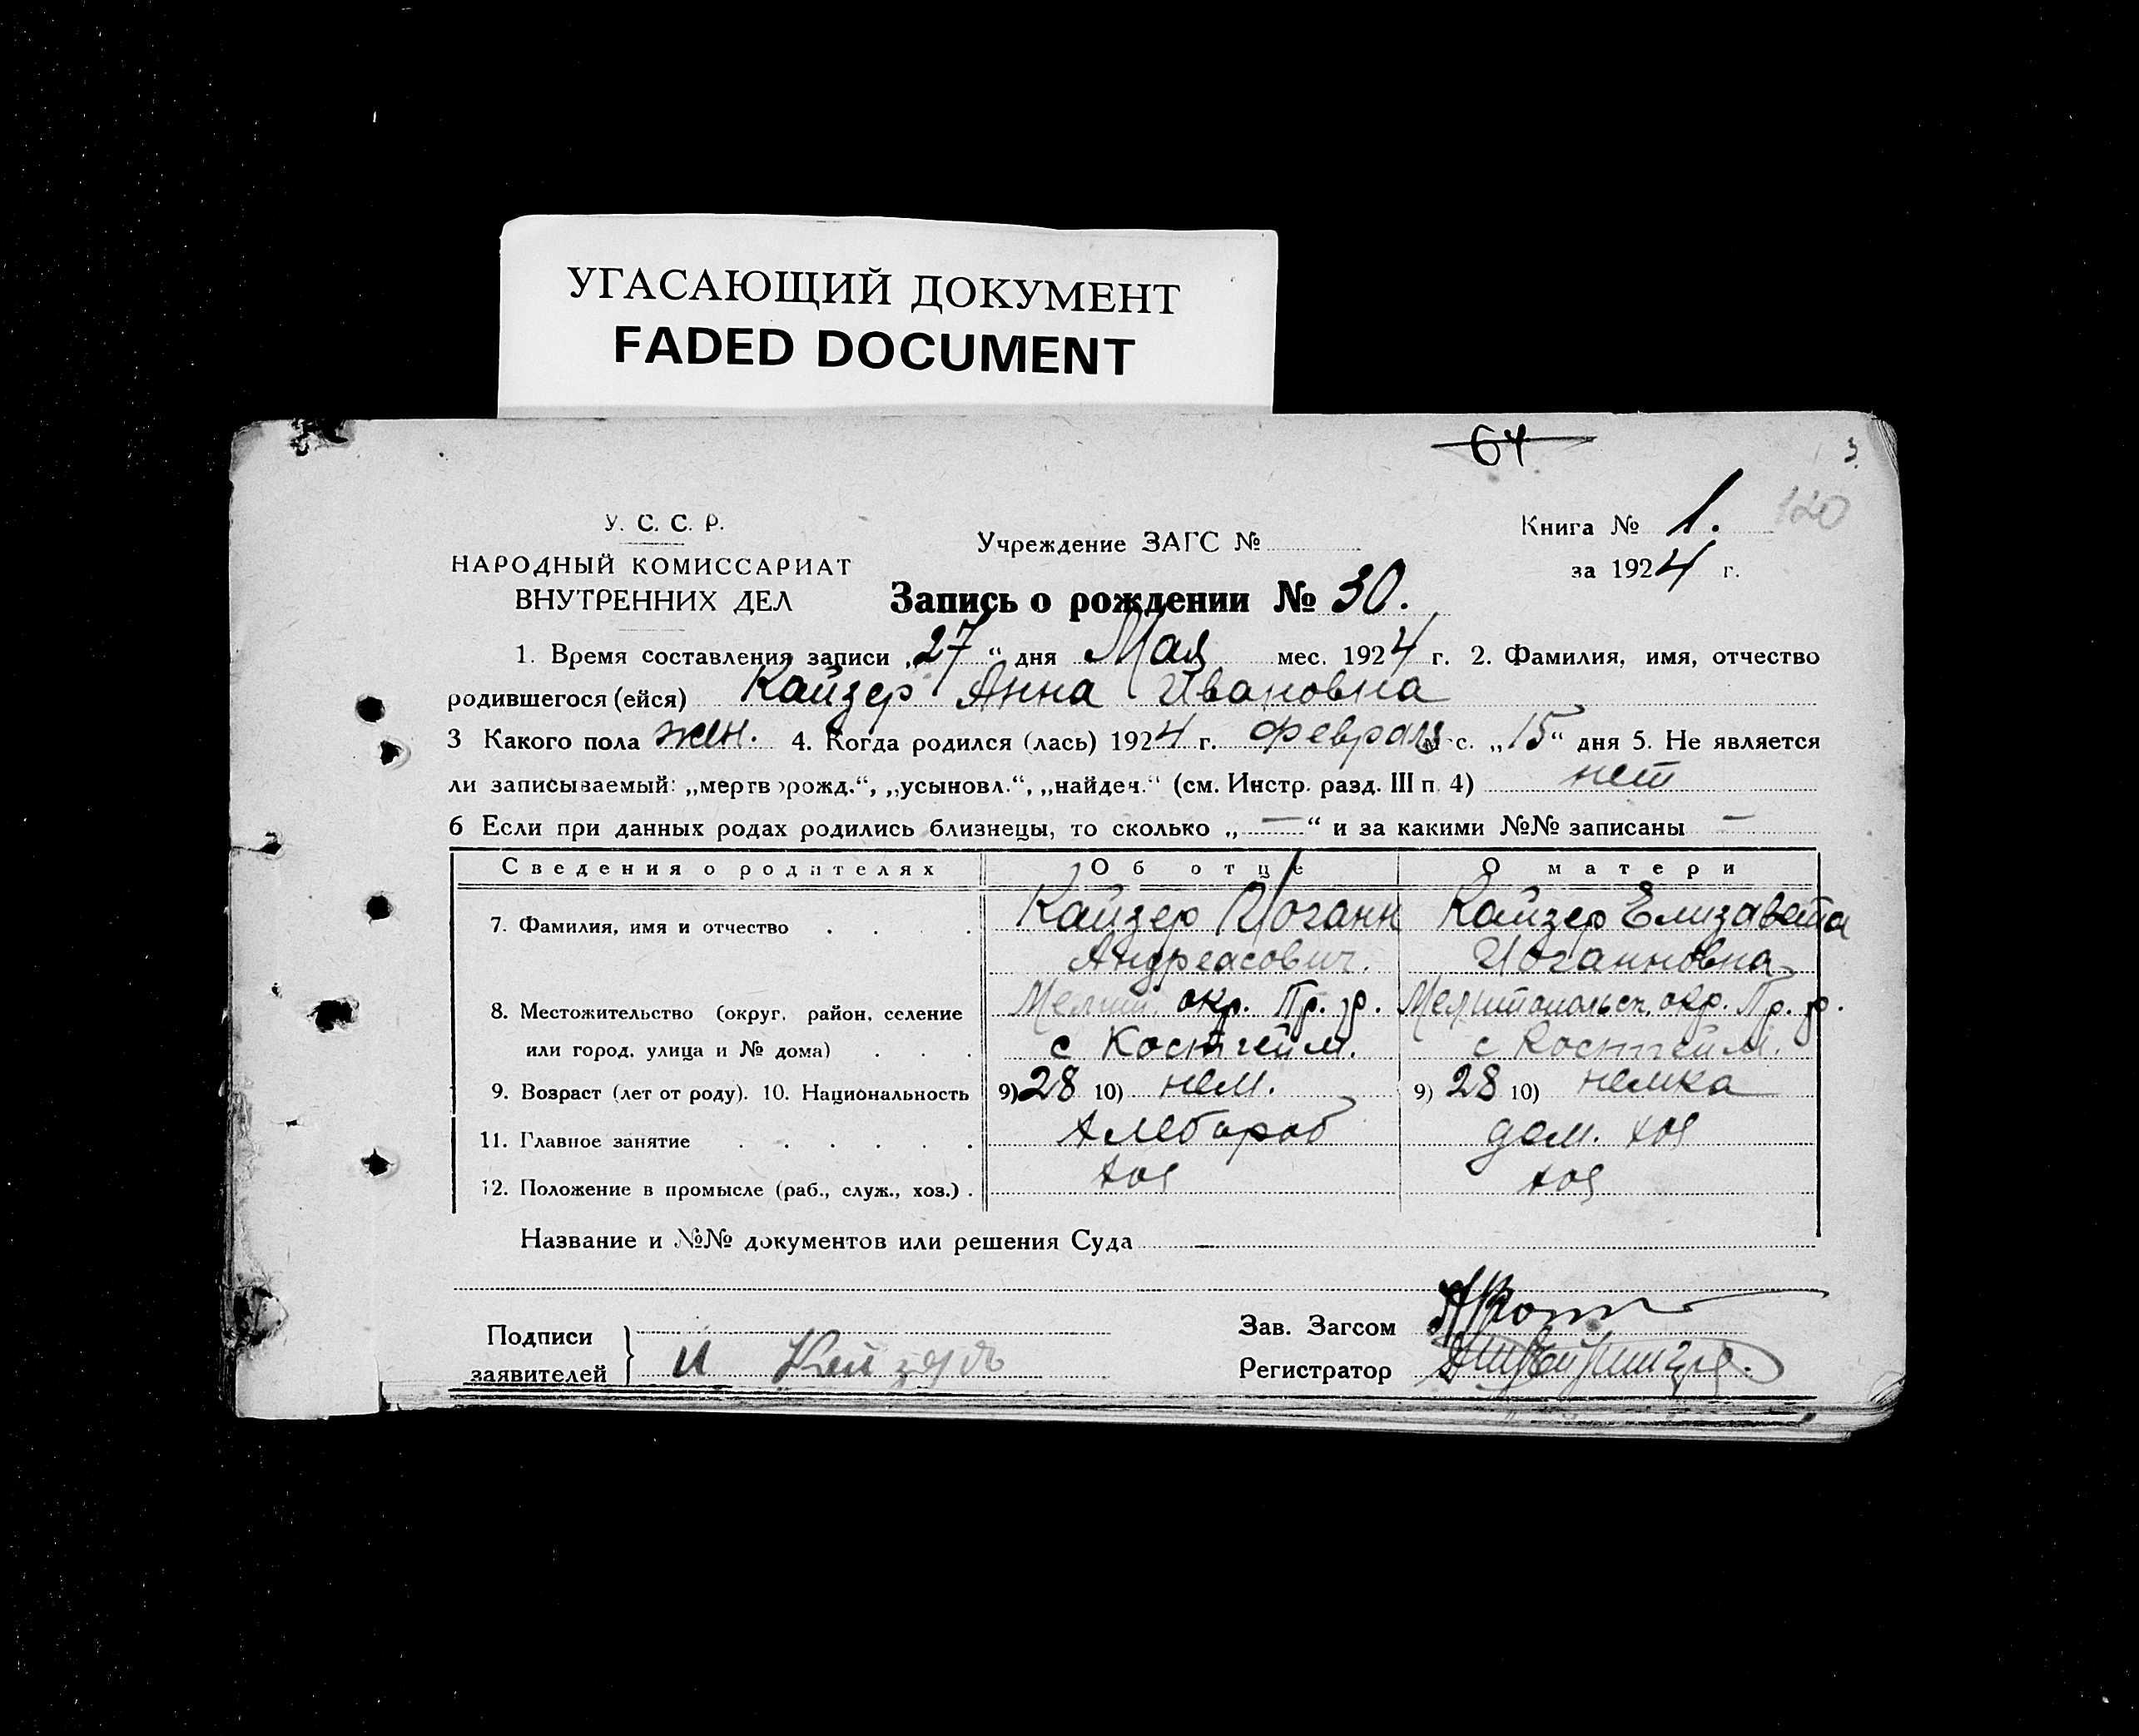 УГАСАЮЩИЙ ДОКУМЕНТ
FADED DOCUMENT
64
3
120
У. С. С. Р.
НАРОДНЫЙ КОМИССАРИАТ
ВНУТРЕННИХ ДЕЛ
Учреждение ЗАГС №
Книга № 1.
за 1924 г.
Запись о рождении № 30.
1. Время составления записи „27“ дня Мая мес. 1924 г. 2. Фамилия, имя, отчество
родившегося (ейся) Кайзер Анна Ивановна
3 Какого пола жен. 4. Когда родился (лась) 1924 г. февраля мес. „15“ дня 5. Не является
ли записываемый: „мертворожд.“, „усыновл.“, „найден.“ (см. Инстр. разд. III п. 4) нет
6 Если при данных родах родились близнецы, то сколько „—“ и за какими №№ записаны —
Сведения о родителях Об отце О матери
7. Фамилия, имя и отчество Кайзер Иоганн Кайзер Елизавета
Андреасович. Иоганновна
8. Местожительство (округ, район, селение Мелит. окр. Пр. р. Мелитопольск. окр. Пр. р.
или город, улица и № дома) с Костгейм. с Костгейм.
9. Возраст (лет от роду). 10. Национальность 9) 28 10) нем. 9) 28 10) немка
11. Главное занятие хлебороб дом. хоз
12. Положение в промысле (раб., служ., хоз.) хоз хоз
Название и №№ документов или решения Суда —
Подписи
заявителей И
Зав. Загсом
Регистратор